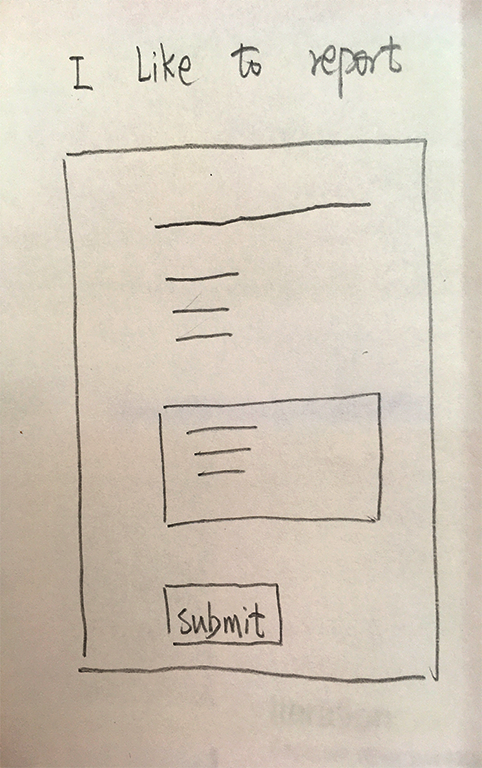 I Like to report
submit